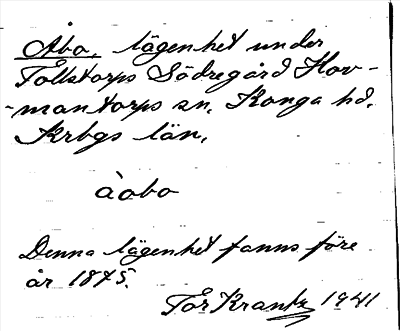 Åbo, lägenhet under
Tollstorps Södregård Hov-
-mantorps sn, Konga hd.
Krbgs län,
àobo
Denna lägenhet fanns före
år 1875.
Tor Krantz 1941